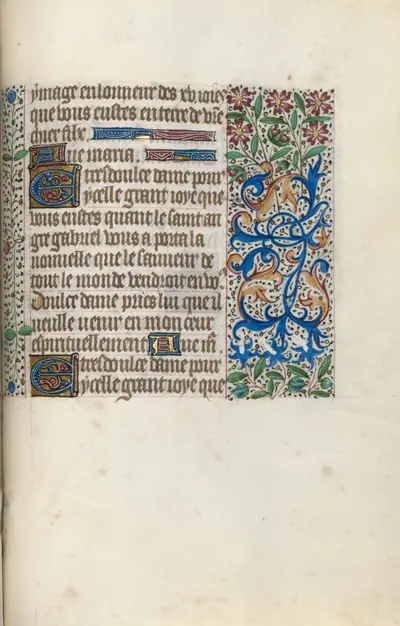 ymage en lonneur des xv. ioies
que vous eustes en terre de vr̄e
chier filz.
Aue maria.
Tresdoulce dame pour
ycelle grant ioye que
vous eustes quant le saint an
ge gabriel vous aporta la
nouuelle que le sauueur de
tout le monde vendroit en vo9.
doulce dame pries lui que il
vueille venir en mon cueur
espirituellement Aue m̄.
Tresdoulce dame pour
ycelle grant ioye que